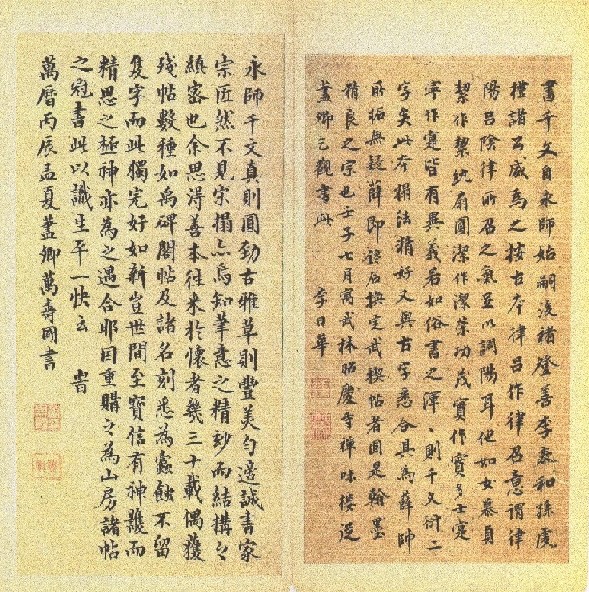 書千文自永師始嗣後褚登善李和孫虔
禮諸公咸為之按古本律吕作律召意謂律
陽吕陰律所召之氣至以調陽耳他如女慕貞
絜作絜紈扇圓潔作潔崇功茂實作多士寔
寧作寔皆有異義若如俗書之則千文衍二
字矣此本搨法精好又與古字悉合其為薛師
所拓無疑薛即定武禊帖者固是翰墨
精良之宗也壬子七月寓武林昭慶寺禪味樓從
藎卿兄觀書此 李日華
永師千文真則圓勁古雅草則豐美勻邊誠書家
宗匠然不見宋搨亦烏知筆意之精妙而結搆之
縝密也余思得善本往来於懷者幾三十載偶獲
殘帖數種如禹碑閣帖及諸名刻悉為蠹蝕不留
隻字而此獨完好如新豈世間至寶信有神護而
精思之極神亦為之遇合耶因重購之為山房諸帖
之冠書此以識生平一快云 旹
萬曆丙辰孟夏藎卿萬壽國書